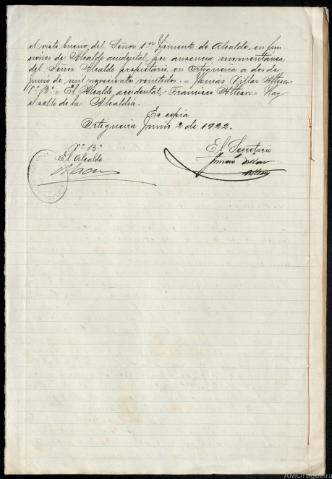 el visto bueno del Señor 1.er Teniente de Alcalde, en fun
ciones de Alcalde accidental, por ausencia momentánea
del Señor Alcalde propietario, en Ortigueira a dos de
junio de mil novecientos veintidos.=
Vº Bº= El Alcalde accidental= Francisco Hay
el sello de la Alcaldia.
Es copia
Ortigueira Junio 2 de 1922.
Vº Bº
El Alcalde
El Secretario